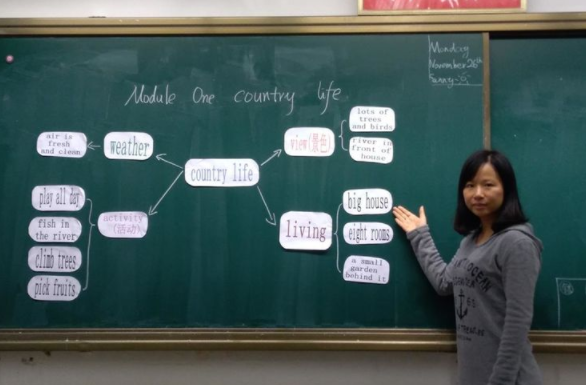 Monday
November 26th
Sunny
Module One country life
lots of
trees
and birds
air is
fresh
and clean
weather
view(景色)
river in
front of
house
country life
play all day
big house
fish in
the river
activity
(活动)
living
eight rooms
climb trees
a small
garden
behind it
pick fruits
OCEAN